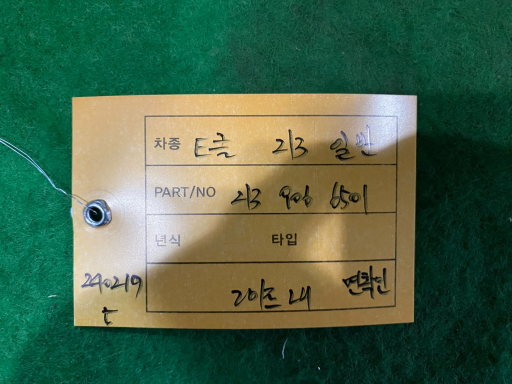 차종 E클 213 일반
PART/NO 213 906 6501
년식 타입
240219
라이트 내 면확인